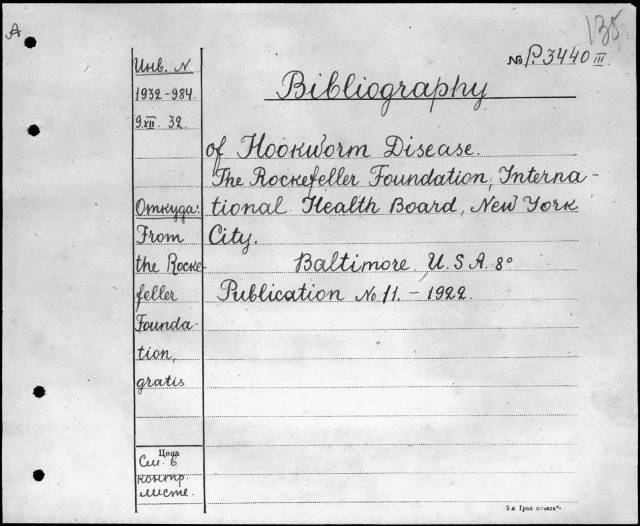 A
135
№ P. 3440 III.
Инв. N
1932-984.
9 XII. 32.
Bibliography
of Hookworm Disease.
The Rockefeller Foundation, Interna-
tional Health Board, New York
City.
Baltimore, U.S.A. 8°
Publication № 11. - 1922.
Откуда:
From
the Rocke-
feller
Founda-
tion,
gratis
Цена
См. в
контр.
листе.